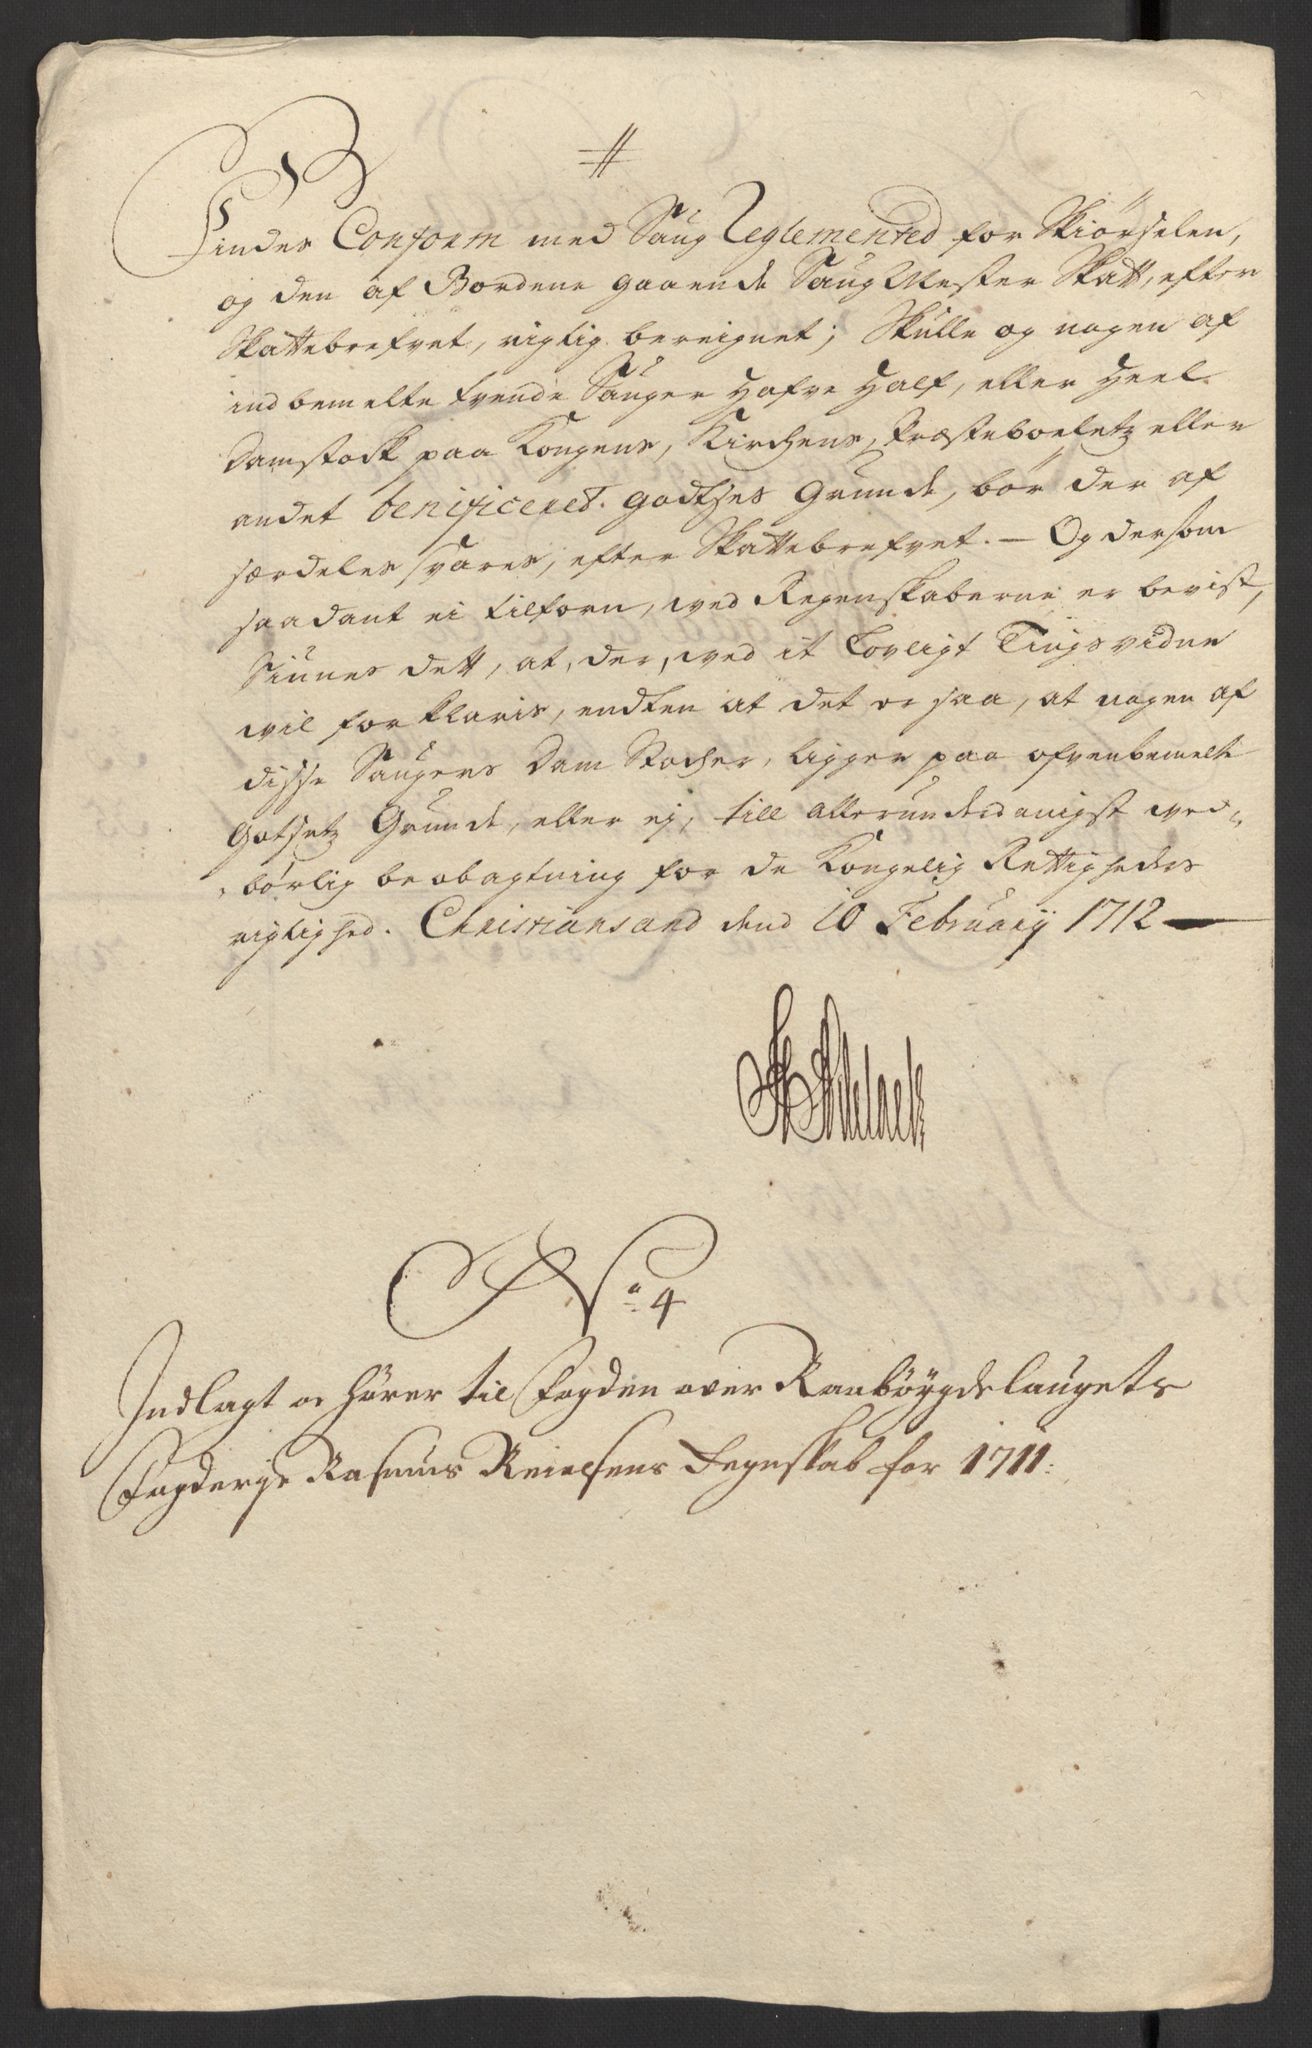 #
Findes Conform med Saug Reglemented for Skiørselen,
og den af Bordene gaaende Saug Mester Skatt, efter
Skattebrefvet, rigtig bereignet; Skulle og nogen af
indbemelte tvende Sauger hafve Half, eller Heel
Damstock paa Kongens, Kirchens, Præsteboeletz eller
andet benificeret. godtses Grunde, bør der af
særdeles svares, efter Skattebrefvet. — Og dersom
saadant ei tilforn, ved Regenskaberne er bevist,
Siunes dett, at, der, ved it Lovligt Tingsvidne
vil forklaris, endten at det er saa, at nogen af
disse Saugers Dam Stocher, ligger paa ofvenbemelte
Gotsetz Grunde, eller ej, till allerunderdanigst ved-
børlig beobagtning for de Kongelig Rettigheders
rigtighed. Christiansand dend 10 Februarij 1712
No 4
Indlagt oc hører til Fogden over Raabøygdelaugets
Fogderje Rasmus Reiersens Regnskab for 1711: